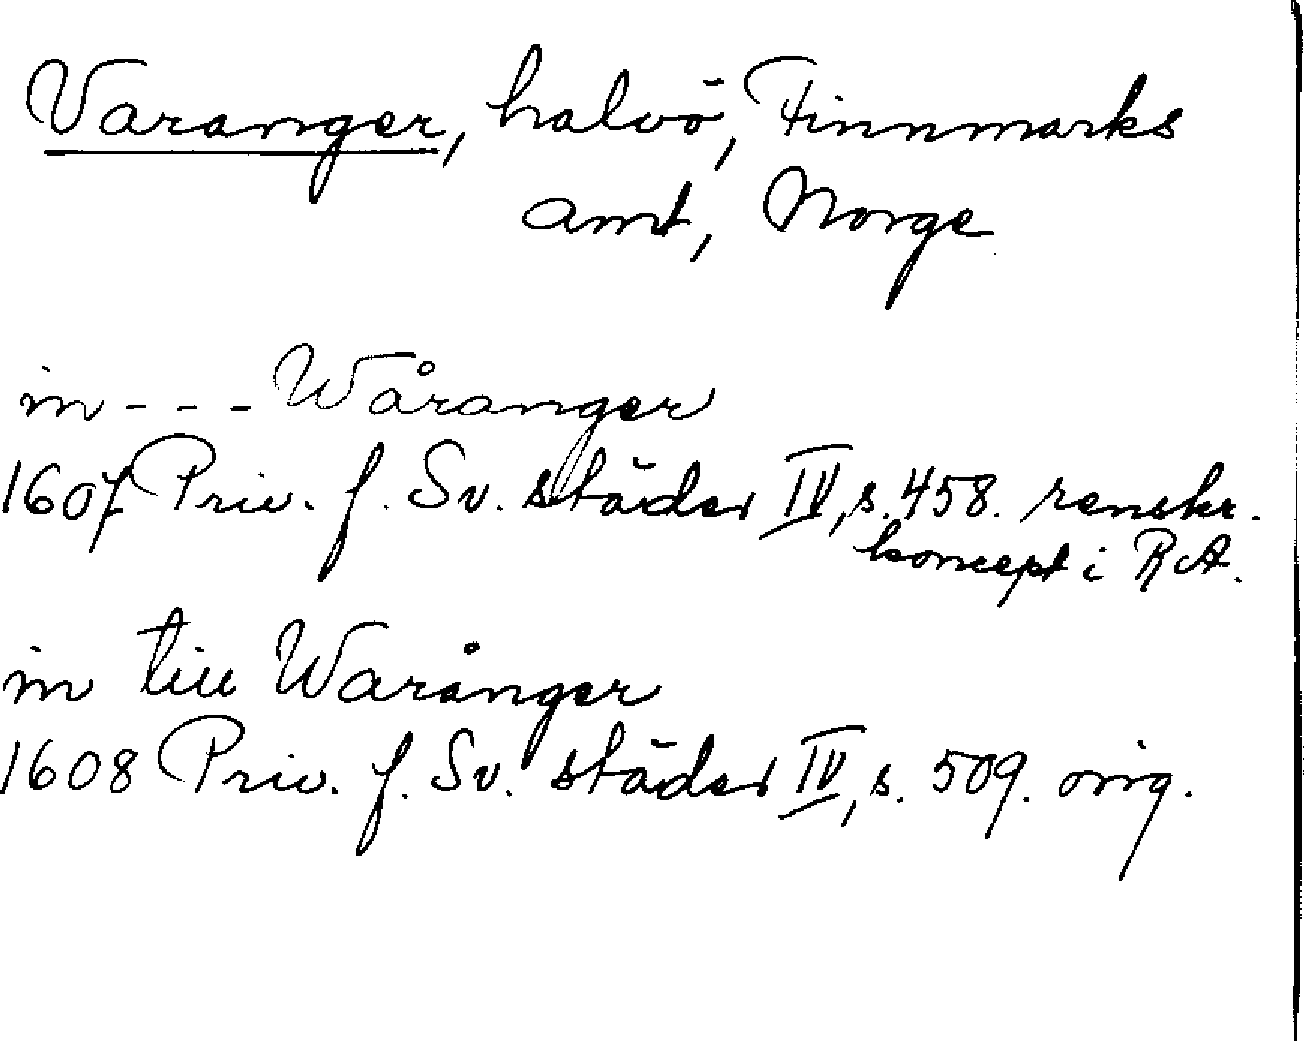 Varanger, halvö, Finnmarks
amt, Norge
in - - - Wåranger
1607 Priv. f. Sv. städer IV, s. 458. renskr.
koncept i RA.
in till Warånger
1608 Priv. f. Sv. städer IV, s. 509. orig.